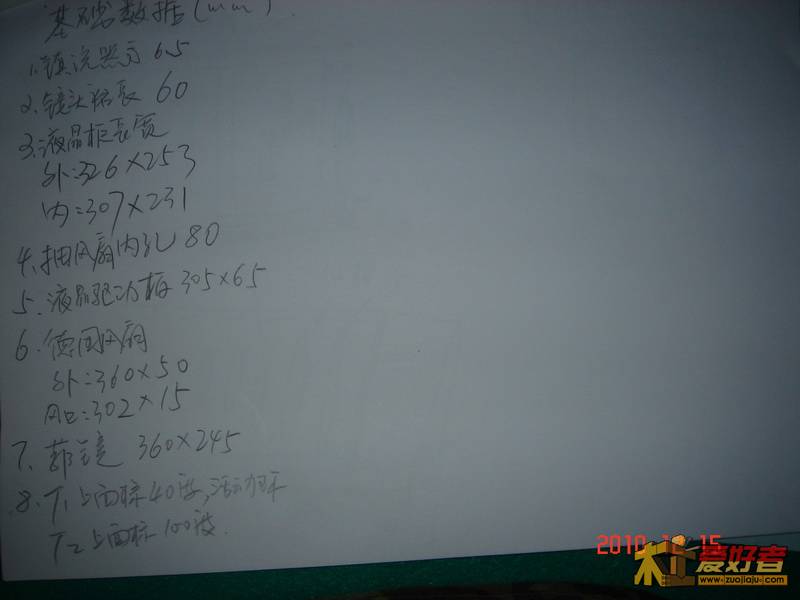 基础数据(mm)
1.镇流器方 65
2.镜头 长 60
3.液晶框长宽
外:326×253
内:307×231
4.抽风扇内孔 80
5.液晶驱动板 305×65
6.德国风扇
外:360×50
风口:302×15
7.菲镜 360×245
8.T1上面标40度,
T2上面标100度.
2010 15
爱好者
www.zuojiaju.com